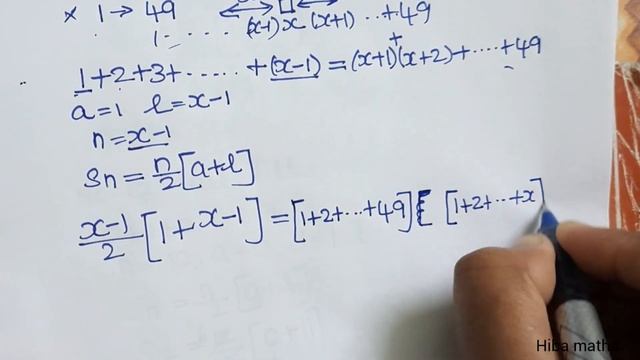 x 1→ 49
1- ..... (x-1) x (x+1) ..+49
1+2+3+ ..... + (x-1) = (x+1)+(x+2)+ ....+49
a=1 l=x-1
n=x-1
Sn=n/2[a+l]
x-1/2[1+x-1]=[1+2+...+49] [ [1+2+...+x]
Hiba maths